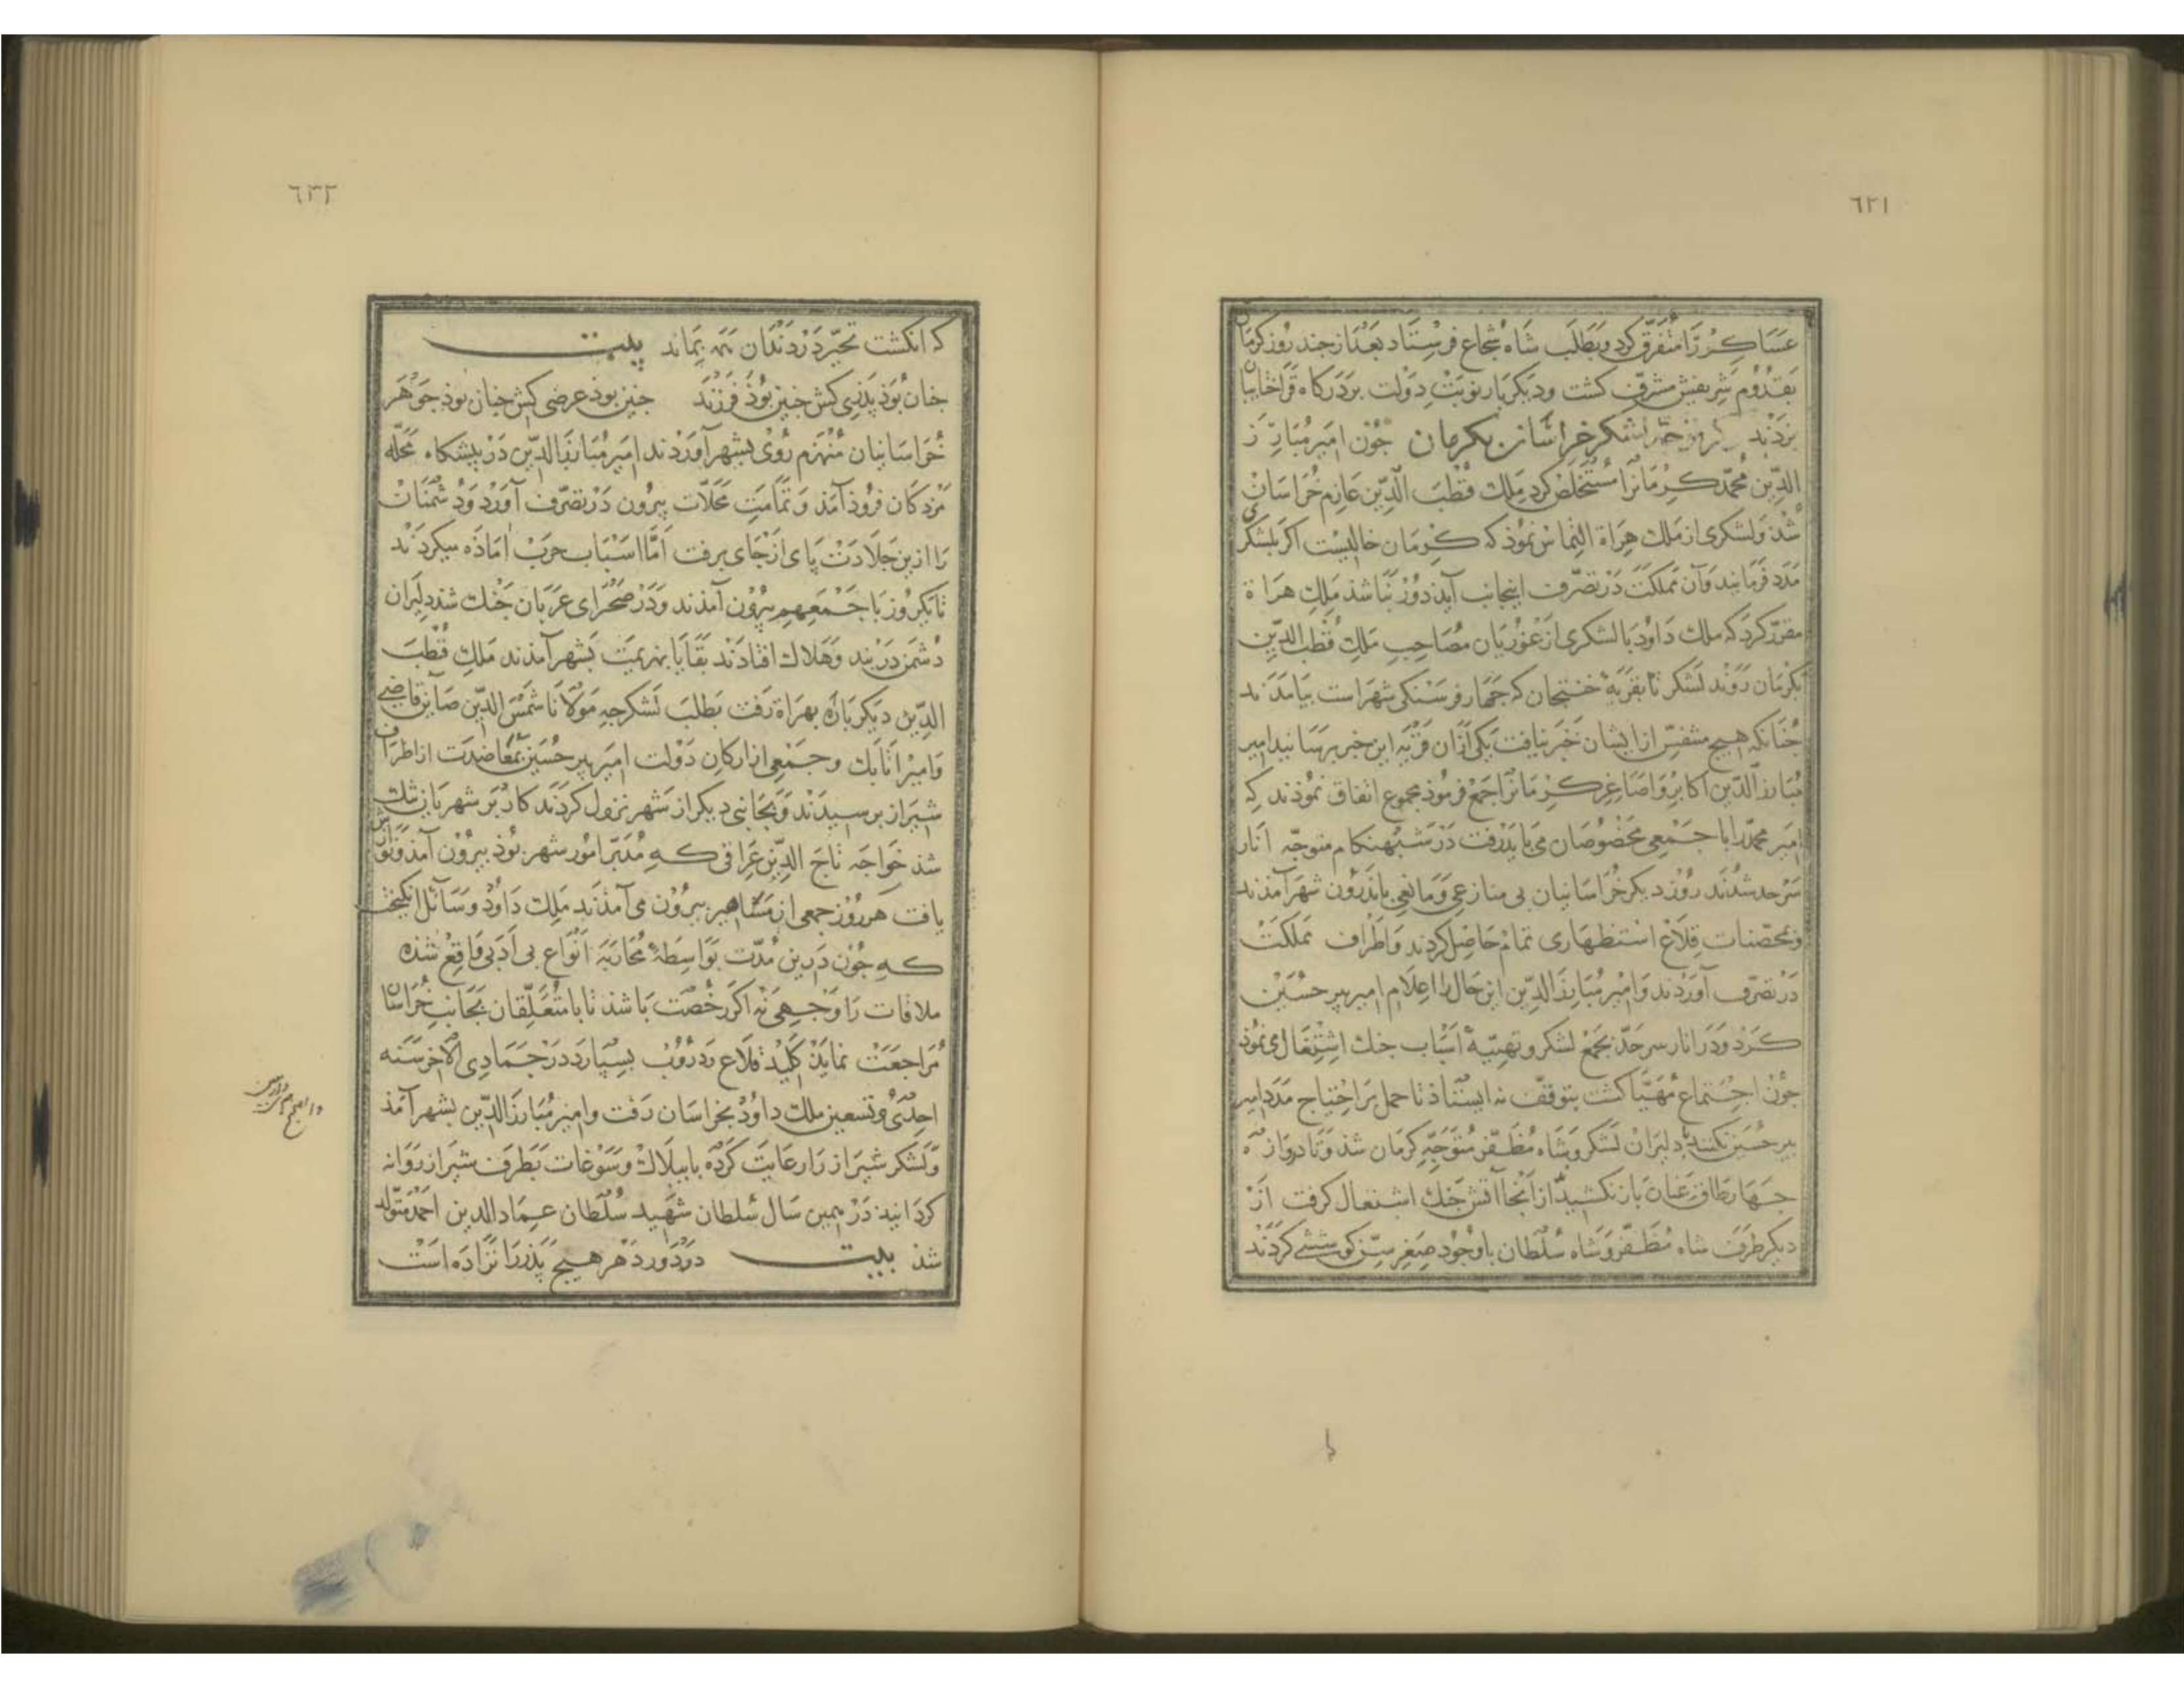 ٦٢١
عساكر را متفرق كرد و بطلب شاه شجاع فرستاد بعد از جند روز كرمان
بقدوم شريفش مشرف كشت و ديكر بار نوبت دولت بر دركاه قراختاييان
بزدند لشكر خراسان بكرمان جون امير مبارز
الدين محمد كرمانرا مستخلص كرد ملك قطب الدين عازم خراسان
شد و لشكرى از ملك هراة التماس نموذ كه كرمان خاليست اكر بلشكرى
مدد فرمايند و آن مملكت در تصرف اينجانب آيد دور نباشد ملك هراة
مقرر كرد كه ملك داود با لشكرى از غوريان مصاحب ملك قطب الدين
بكرمان روند لشكر تا بقريه خنبجان كه جهار فرسنكى شهر است بيامدند
جنانكه هيج متنفس از ايشان خبر نيافت يكى از ان قريه اين خبر برسانيد امير
مبارز الدين اكابر و اصاغر كرمانرا جمع فرموذ مجموع اتفاق نموذند كه
امير محمد را با جمعى مخصوصان مى بايد رفت در شب هنكام متوجه انار
سرحد شدند روز ديكر خراسانيان بى منازعى و مانعى باندرون شهر آمذند
و بمحصنات قلاع استظهارى تمام حاصل كردند و اطراف مملكت
در تصرف آوردند و امير مبارز الدين اين حال را اعلام امير پير حسين
كرد و در انار سرحد بجمع لشكر و تهيئه اسباب جنك اشتغال مى نموذ
جون اجتماع مهيا كشت بتوقف نه ايستاد تا حمل بر احتياج مدد امير
پير حسين نكنند دليران لشكر و شاه مظفر متوجه كرمان شد و تا دروازه
جهار طاق عنان باز نكشيد از آنجا آتش جنك اشتعال كرفت از
ديكر طرف شاه مظفر و شاه سلطان با وجود صغر سن كوششى كردند
٦٢٢
كه انكشت تحير در دندان بماند بيت
جنان بوذ پذرى كش جنين بوذ فرزند جنين بوذ عرضى كش جنان بوذ جوهر
خراسانيان منهزم روى بشهر آوردند امير مبارز الدين در پيشكاه محله
مردكان فروذ آمذ و تمامت محلات بيرون در تصرف آورد و دشمنان
را ازين جلادت پاى از جاى برفت اما اسباب حرب اماده ميكردند
تا يكروز با جمعهم بيرون آمذند و در صحراى عربان جنك شد دليران
دشمن در بند و هلاك افتادند بقايا بهزيمت بشهر آمذند ملك قطب
الدين ديكر باره بهراة رفت بطلب لشكر جه مولانا شمس الدين صاين قاضى
و امير اتابك و جمعى از اركان دولت امير پير حسين بمعاضدت از اطراف
شيراز برسيدند و بجانبى ديكر از شهر نزول كردند كار بر شهريان تنك
شد خواجه تاج الدين عراقى كه مدبر امور شهر بوذ بيرون آمذ و نوازش
يافت هر روز جمعى از مشاهير بيرون مى آمذند ملك داود وسائل انكيخت
كه جون درين مدت بواسطه محاربه انواع بى ادبى واقع شذه
ملاقات را وجهى نه اكر رخصت باشذ تا با متعلقان بجانب خراسان
مراجعت نمايذ كليد قلاع و دروب بسپارد در جمادى الآخر سنه
احدى و تسعين ملك داود بخراسان رفت و امير مبارز الدين بشهر آمذ
و لشكر شيراز را رعايت كرده با بيلاك و سوغات بطرف شيراز روانه
كردانيد در همين سال سلطان شهيد سلطان عماد الدين احمد متولد
شذ بيت در دور دهر هيج پذر را نزاده است